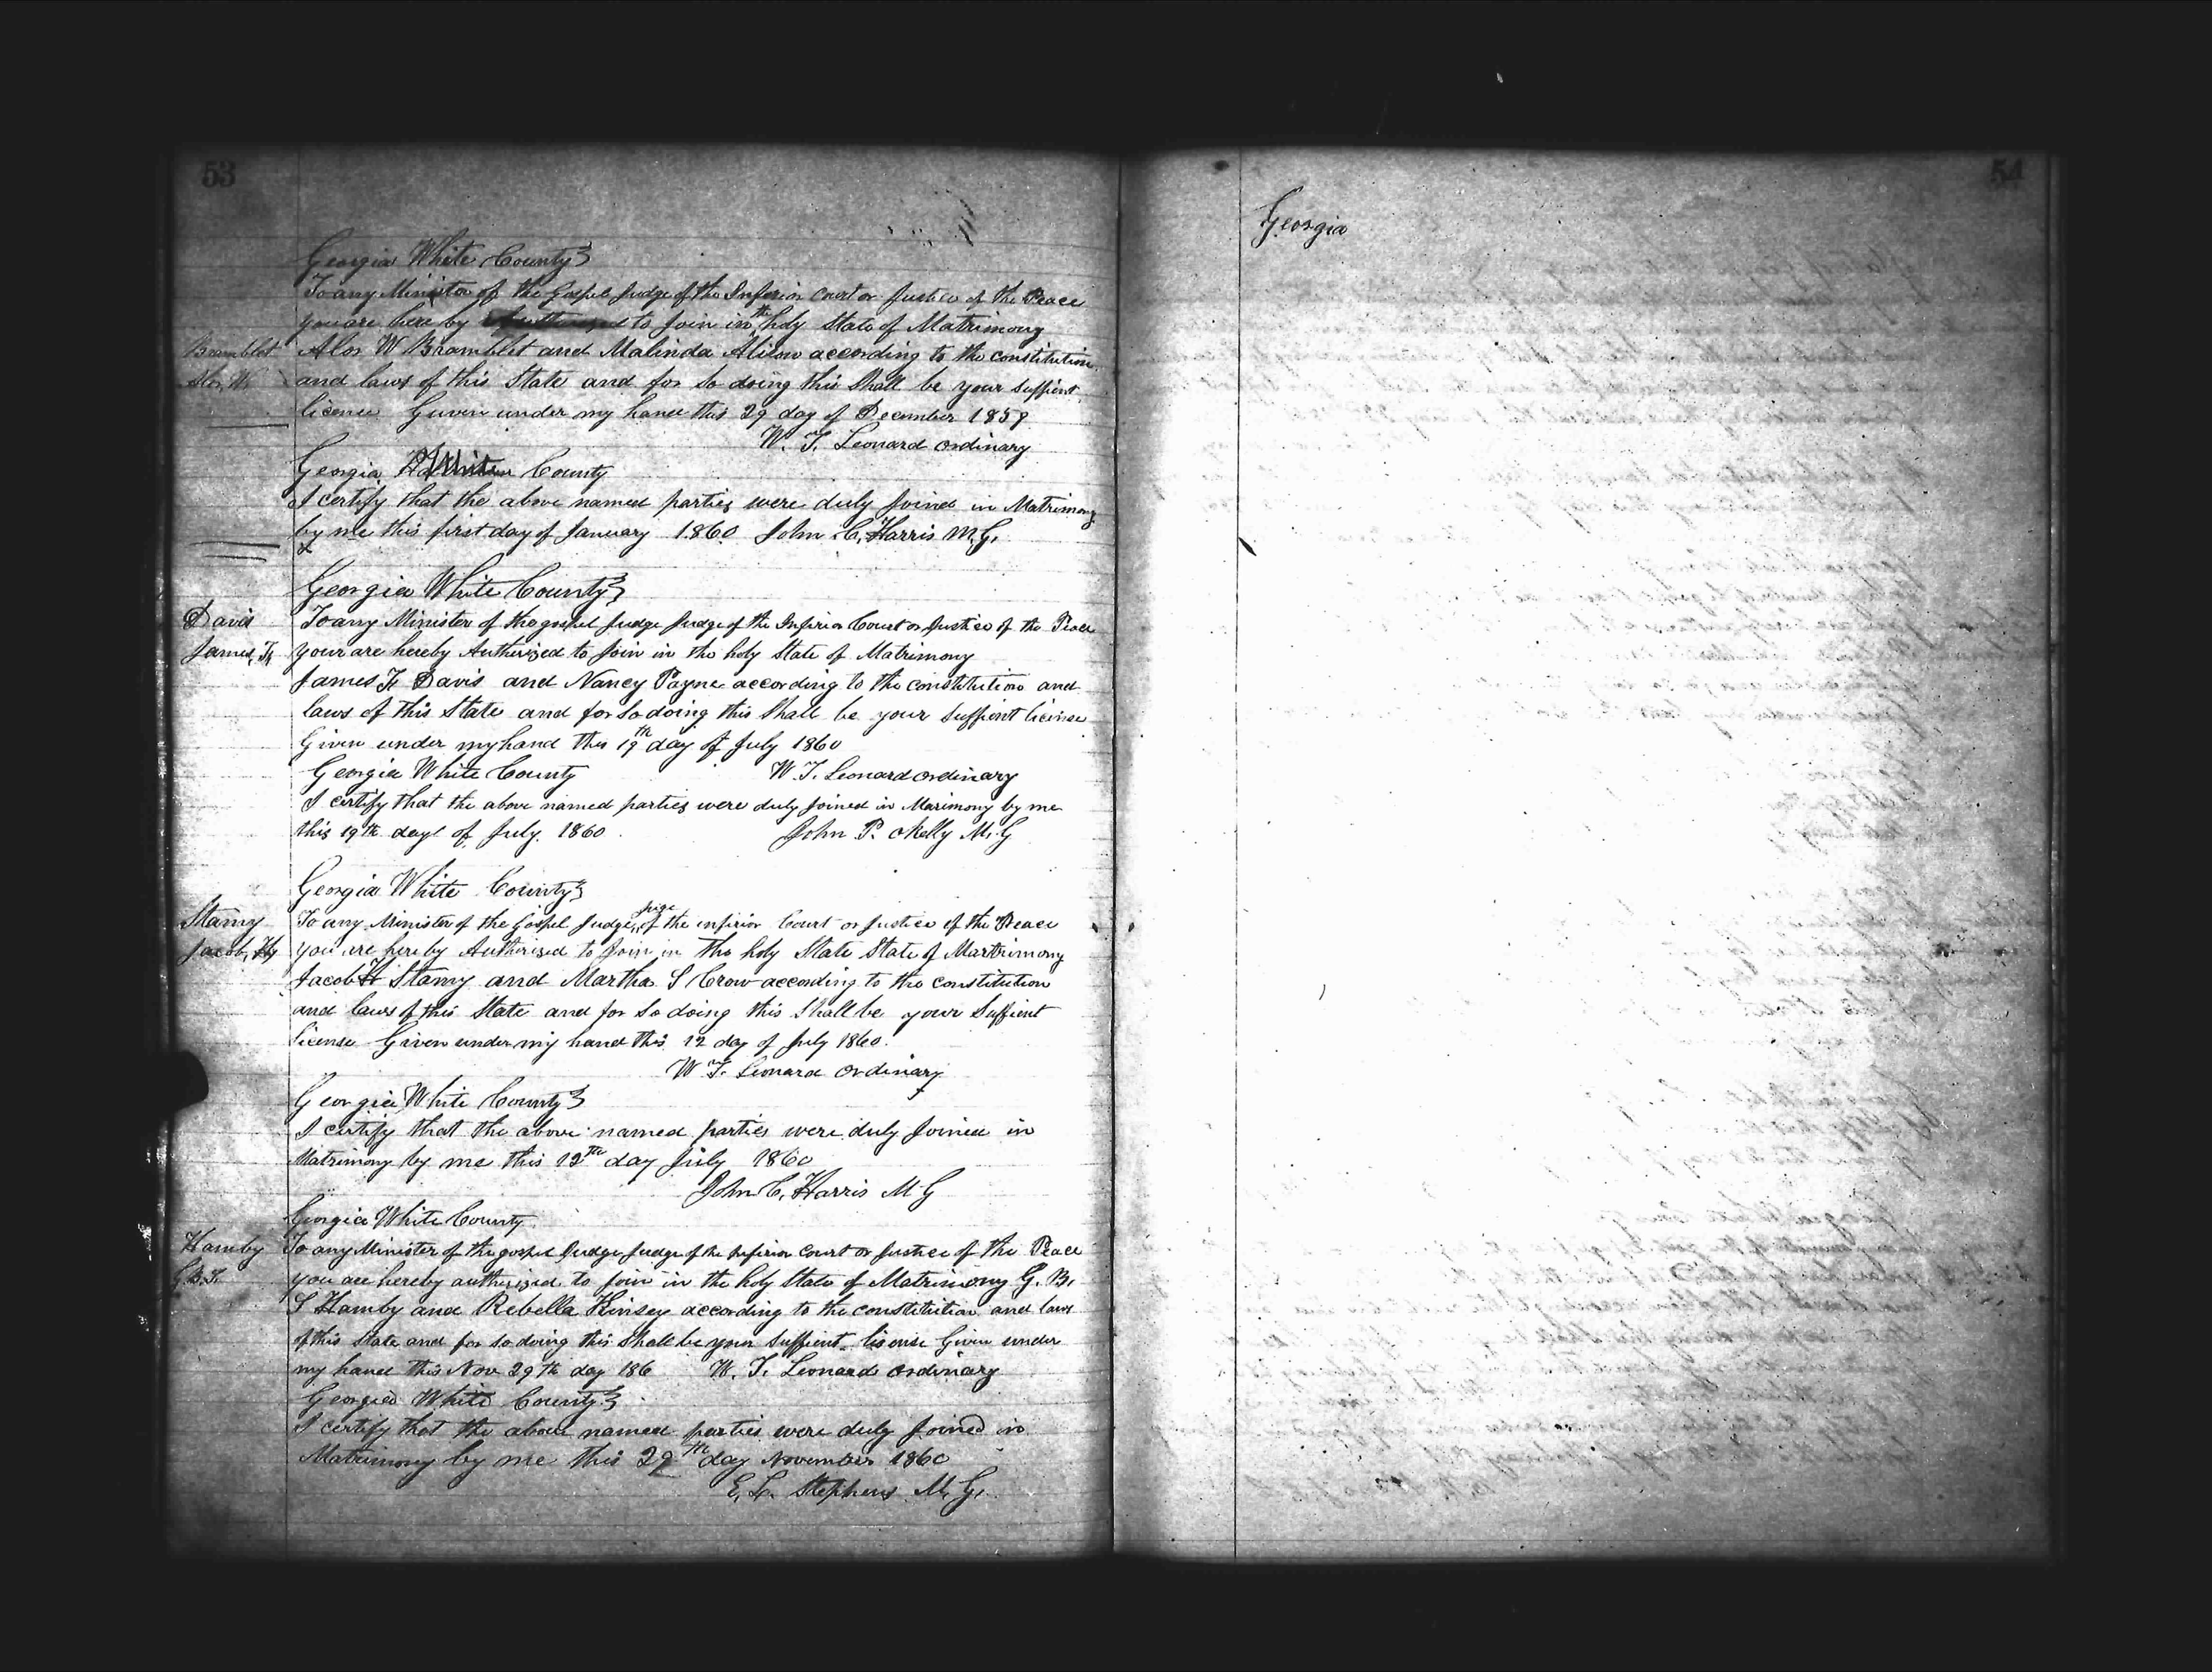 53
Georgia White County
To any Minister of the Gospel Judge of the Inferior Court or Justice of the Peace
you are here by Authorized to Join in the holy State of Matrimony
Bramblet
Alos W Bramblet and Malinda Alison according to the constitution
Alos, W.
and laws of this State and for So doing this Shall be your Suffient
licence Guven under my hand this 29 day of December 1859
W. T. Leonard ordinary
Georgia White County
I certify that the above named parties were duly Joined in Matrimony
by me this first day of January 1860 John C. Harris M.G.
Georgia White County
Davis
To any Minister of the gospel Judge Judge of the Inferior Court or Justice of the Peace
James, F,
your are hereby Autherized to Join in the holy State of Matrimony
James F Davis and Nancy Payne according to the constitution and
laws of this State and for So doing this Shall be your Suffient license
Given under my hand this 19th day of July 1860
Georgia White County W. T. Leonard ordinary
I certify that the above named parties were duly Joined in Marimony by me
this 19th day of July 1860 John P. okelly M.G
Georgia White County
Stamy
To any Minister of the Gospel Judge, juge of the inferior Court or Justice of the Peace
Jacob, H,
you are here by Autherised to Join in the holy State State of Martrimony
Jacob H Stamy and Martha S Crow according to the constitution
and laws of this State and for So doing this Shall be your Suffient
license Given under my hand this 12 day of July 1860.
W T. Leonard Ordinary
Georgia White County
I certify that the above named parties were duly Joined in
Matrimony by me this 12th day July 1860
John C, Harris M G
Georgia White County
Hamby
To any Minister of the gospel Judge Judge of the inferior Court or Justice of the Peace
G.B.S.
you are hereby autherized to join in the holy State of Matrimony G. B.
S Hamby and Rebella Kinsey according to the constitution and laws
of this State and for so doing this Shall be your Suffient lisense Given under
my hand this Nov 29th day 186 W. T. Leonard ordinary
Georgia White County
I certify that the above named parties were duly Joined in
Matrimony by me this 29th day November 1860
E. L. Stephens M. G.
54
Georgia